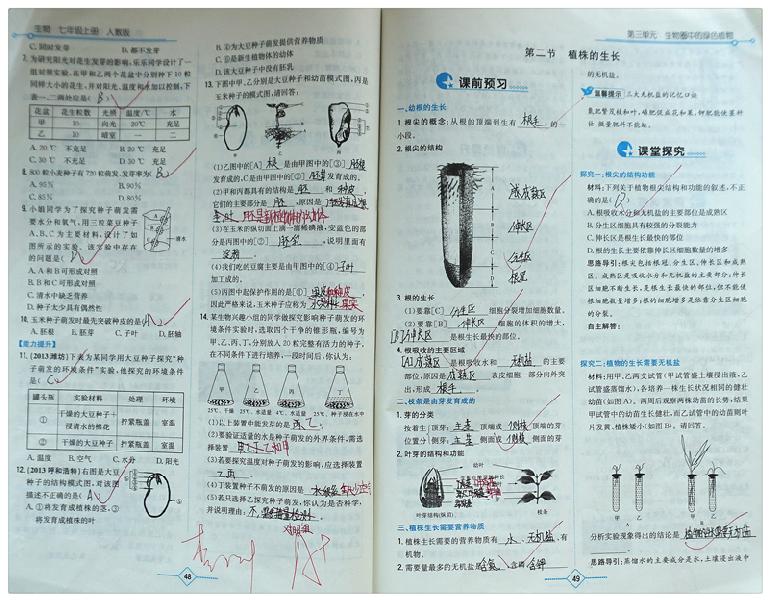 生物 七年级上册 人教版
C. 同时发芽 D. 都不发芽
7. 为研究阳光对花生发芽的影响,乐乐同学设计了一
组对照实验,在甲和乙两个花盆中分别种下10粒
同样大小的花生,并对阳光、温度和水加以控制,下
表一、二两处应是( B )
花盆 花生粒数 光照 温度/℃ 水
甲 10 向光 20℃ 充足
乙 10 暗室 一 二
A. 20℃ 不充足 B. 20℃ 充足
C. 30℃ 不充足 D. 30℃ 充足
8. 800粒小麦种子有720粒萌发,发芽率为( B )
A. 95% B. 90%
C. 85% D. 80%
9. 小组同学为了探究种子萌发需
要水分和氧气,用三粒菜豆种子
A、B、C为主要材料,设计了如
图所示的实验。该实验中存在
的问题是( )
清水
A. A和B可形成对照
B. B和C可形成对照
C. 清水中缺乏营养
D. 种子太少具有偶然性
10. 玉米种子萌发时最先突破种皮的是( A )
A. 胚根 B. 胚芽 C. 子叶 D. 胚轴
【能力提升】
11. (2013潍坊)下表为某同学用大豆种子探究“种
子萌发的环境条件”实验,他探究的环境条件
是( C )
罐头瓶 实验材料 处理 环境
① 干燥的大豆种子+浸青水的棉花 拧紧瓶盖 室温
② 干燥的大豆种子 拧紧瓶盖 室温
A. 温度 B. 空气 C. 水分 D. 阳光
12. (2013呼和浩特)右图是大豆
种子的结构模式图,对该图
描述不正确的是( A )
A. ①将发育成植株的茎,③
将发育成植株的叶
B. ④为大豆种子萌发提供营养物质
C. ⑤是新植物体的幼体
D. 该大豆种子中没有胚乳
13. 下图中甲、乙分别是大豆种子和幼苗模式图,丙是
玉米种子的模式图,请回答:
甲 乙 丙
(1)乙图中的[A] 根 是由甲图中的[③] 胚根
发育成的,C是由甲图中的[②] 胚芽 发育成的。
(2)甲和丙都具有的结构是 胚 和 种皮 ,
它们的主要部分是 胚 ,原因是
(3)在玉米的纵切面上滴一滴稀碘液,变蓝色的部
分是丙图中的[②] 胚乳 ,说明里面有
淀粉 。
(4)我们吃的豆腐主要是由甲图中的[④]子叶
加工成的。
(5)丙图中起保护作用的是[①]
因此严格来说,玉米种子应称为
14. 某生物兴趣小组的同学做探究影响种子萌发的环
境条件实验时,选取四个干净的锥形瓶,编号为
甲、乙、丙、丁,分别放入20粒完整有活力的种子,
在不同条件下进行培养,一段时间后,你认为:
甲 乙 丙 丁
25℃、干燥 25℃、水适量 4℃、水适量 25℃、种子浸在水中
(1)以上装置中能发芽的是 乙 。
(2)要验证适量的水是种子萌发的外界条件,需选
择装置 甲乙
(3)若要探究温度对种子萌发的影响,应选择装置
乙丙 。
(4)丁装置种子不萌发的原因是
(5)若只选择乙探究种子萌发,你认为是否科学,
并说明理由:不,
对照组
48
第三单元 生物圈中的绿色植物
第二节 植株的生长
课前预习
一、幼根的生长
1. 根尖的概念:从根的顶端到生有 根毛 的
小段。
2. 根尖的结构
A
B
C
D
成熟区
伸长区
分生区
根冠
3. 根的生长
(1)要靠[C] 分生区 细胞分裂增加细胞数量。
(2)要靠[B] 伸长区 细胞的体积的增大。
[B]伸长区 是根生长最快的部位。
4. 根吸收的主要区域
[A]成熟区 是根吸收水和 无机盐 的主要
部位,原因是 成熟区 表皮细胞一部分向外突
出,形成 根毛 。
二、枝条是由芽发育成的
1. 芽的分类
按着生位置分 顶芽:主茎 顶端或 侧枝 顶端的芽
侧芽:主茎 侧面或 侧枝 侧面的芽
2. 叶芽的结构和功能
幼叶
叶芽结构(纵剖)
枝条
三、植株生长需要营养物质
1. 植株生长需要的营养物质有 水 、无机盐 、有
机物。
2. 需要量最多的无机盐是 含氮 、含磷 、含钾
的无机盐。
温馨提示 三大无机盐的记忆口诀
氮肥繁茂枝和叶,磷肥促成花和果,钾肥能使茎秆
壮,微量肥料不能缺。
课堂探究
探究一:根尖的结构功能
材料:下列关于植物根尖结构和功能的叙述,不正
确的是( D )
A. 根吸收水分和无机盐的主要部位是成熟区
B. 分生区细胞具有较强的分裂能力
C. 伸长区是根生长最快的部位
D. 根的生长主要依靠伸长区细胞数量的增多
思路导引:根尖包括根冠、分生区、伸长区和成熟
区。成熟区是吸收水分和无机盐的主要部分;伸长
区细胞不断生长,是根生长最快的部位,但不能使
根细胞数目增多;根的细胞增多是依靠分生区细胞
的分裂。
自主解答:
探究二:植物的生长需要无机盐
材料:用甲、乙两支试管(甲试管盛土壤浸出液,乙
试管盛蒸馏水),各培养一株生长状况相同的健壮
幼苗(如图A)。两周后观察两株幼苗的长势,结果
甲试管中的幼苗生长健壮,而乙试管中的幼苗则叶
片发黄、植株矮小(如图B)。请回答。
甲 乙 甲 乙
A B
分析实验现象得出的结论是 植物的生长需要无机盐
。
思路导引:蒸馏水的主要成分是水,土壤浸出液中
49